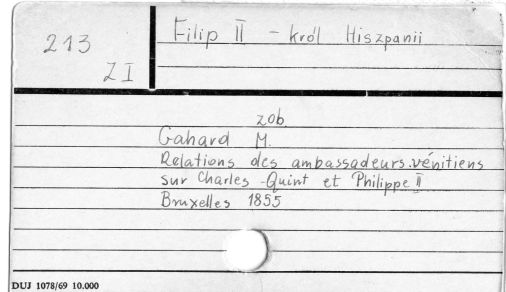 213
Z I
Filip II - król Hiszpanii
zob.
Gahard M.
Relations des ambassadeurs vénitiens
sur Charles-Quint et Philippe II
Bruxelles 1855
DUJ 1078/69 10.000